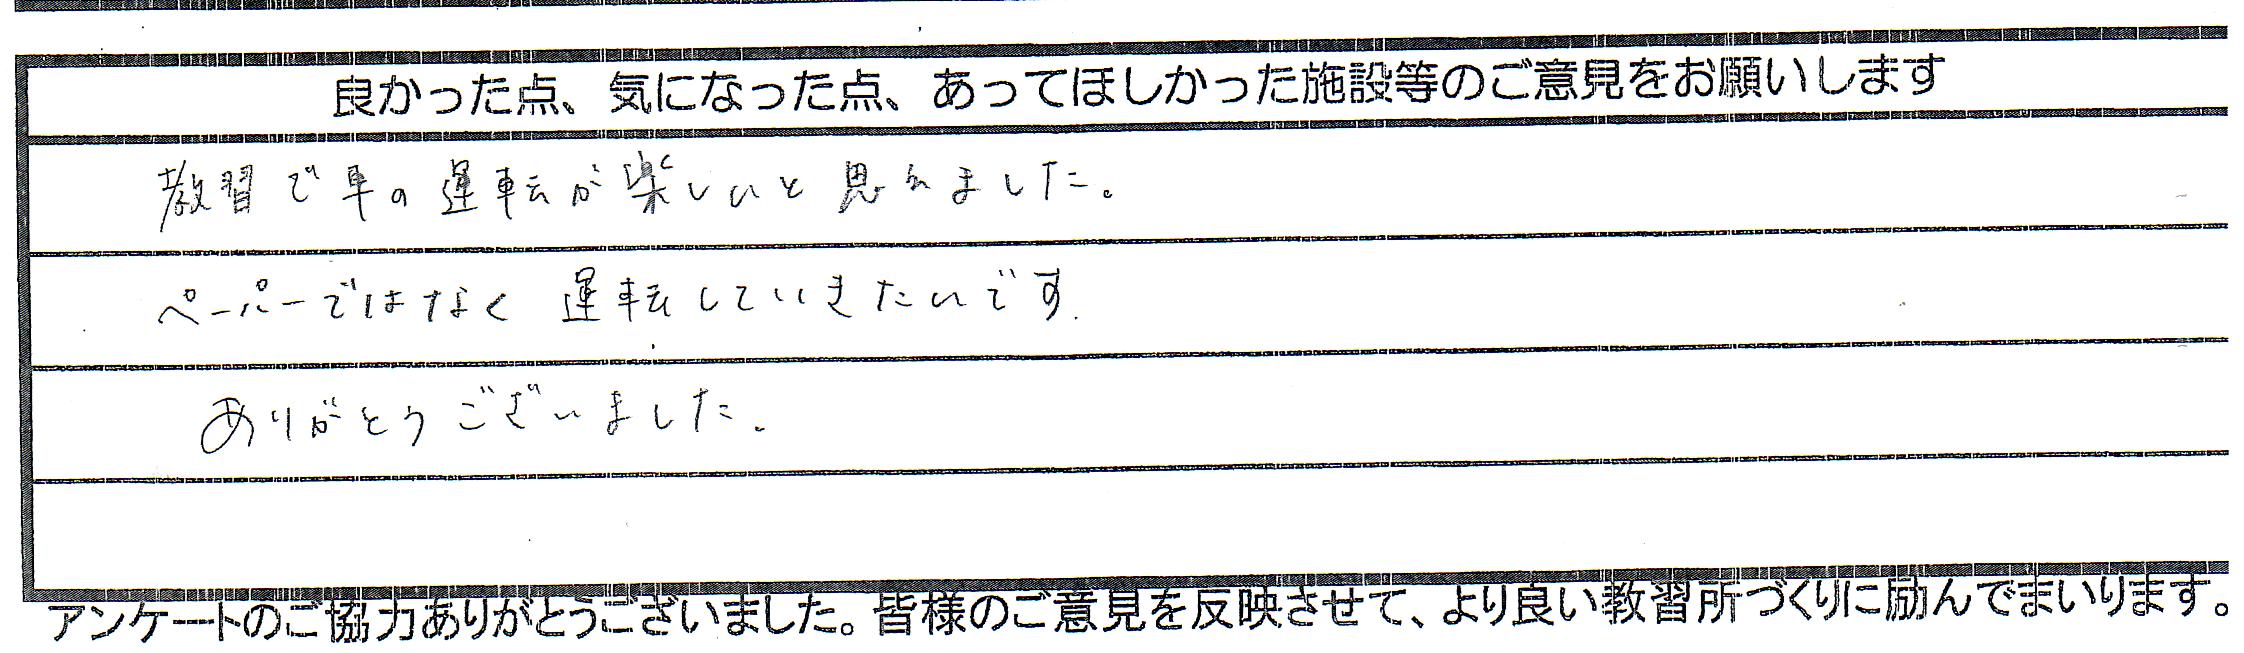 良かった点、気になった点、あってほしかった施設等のご意見をお願いします
教習で車の運転が楽しいと思えました。
ペーパーではなく運転していきたいです.
ありがとうございました。
アンケートのご協力ありがとうございました。皆様のご意見を反映させて、より良い教習所づくりに励んでまいります。